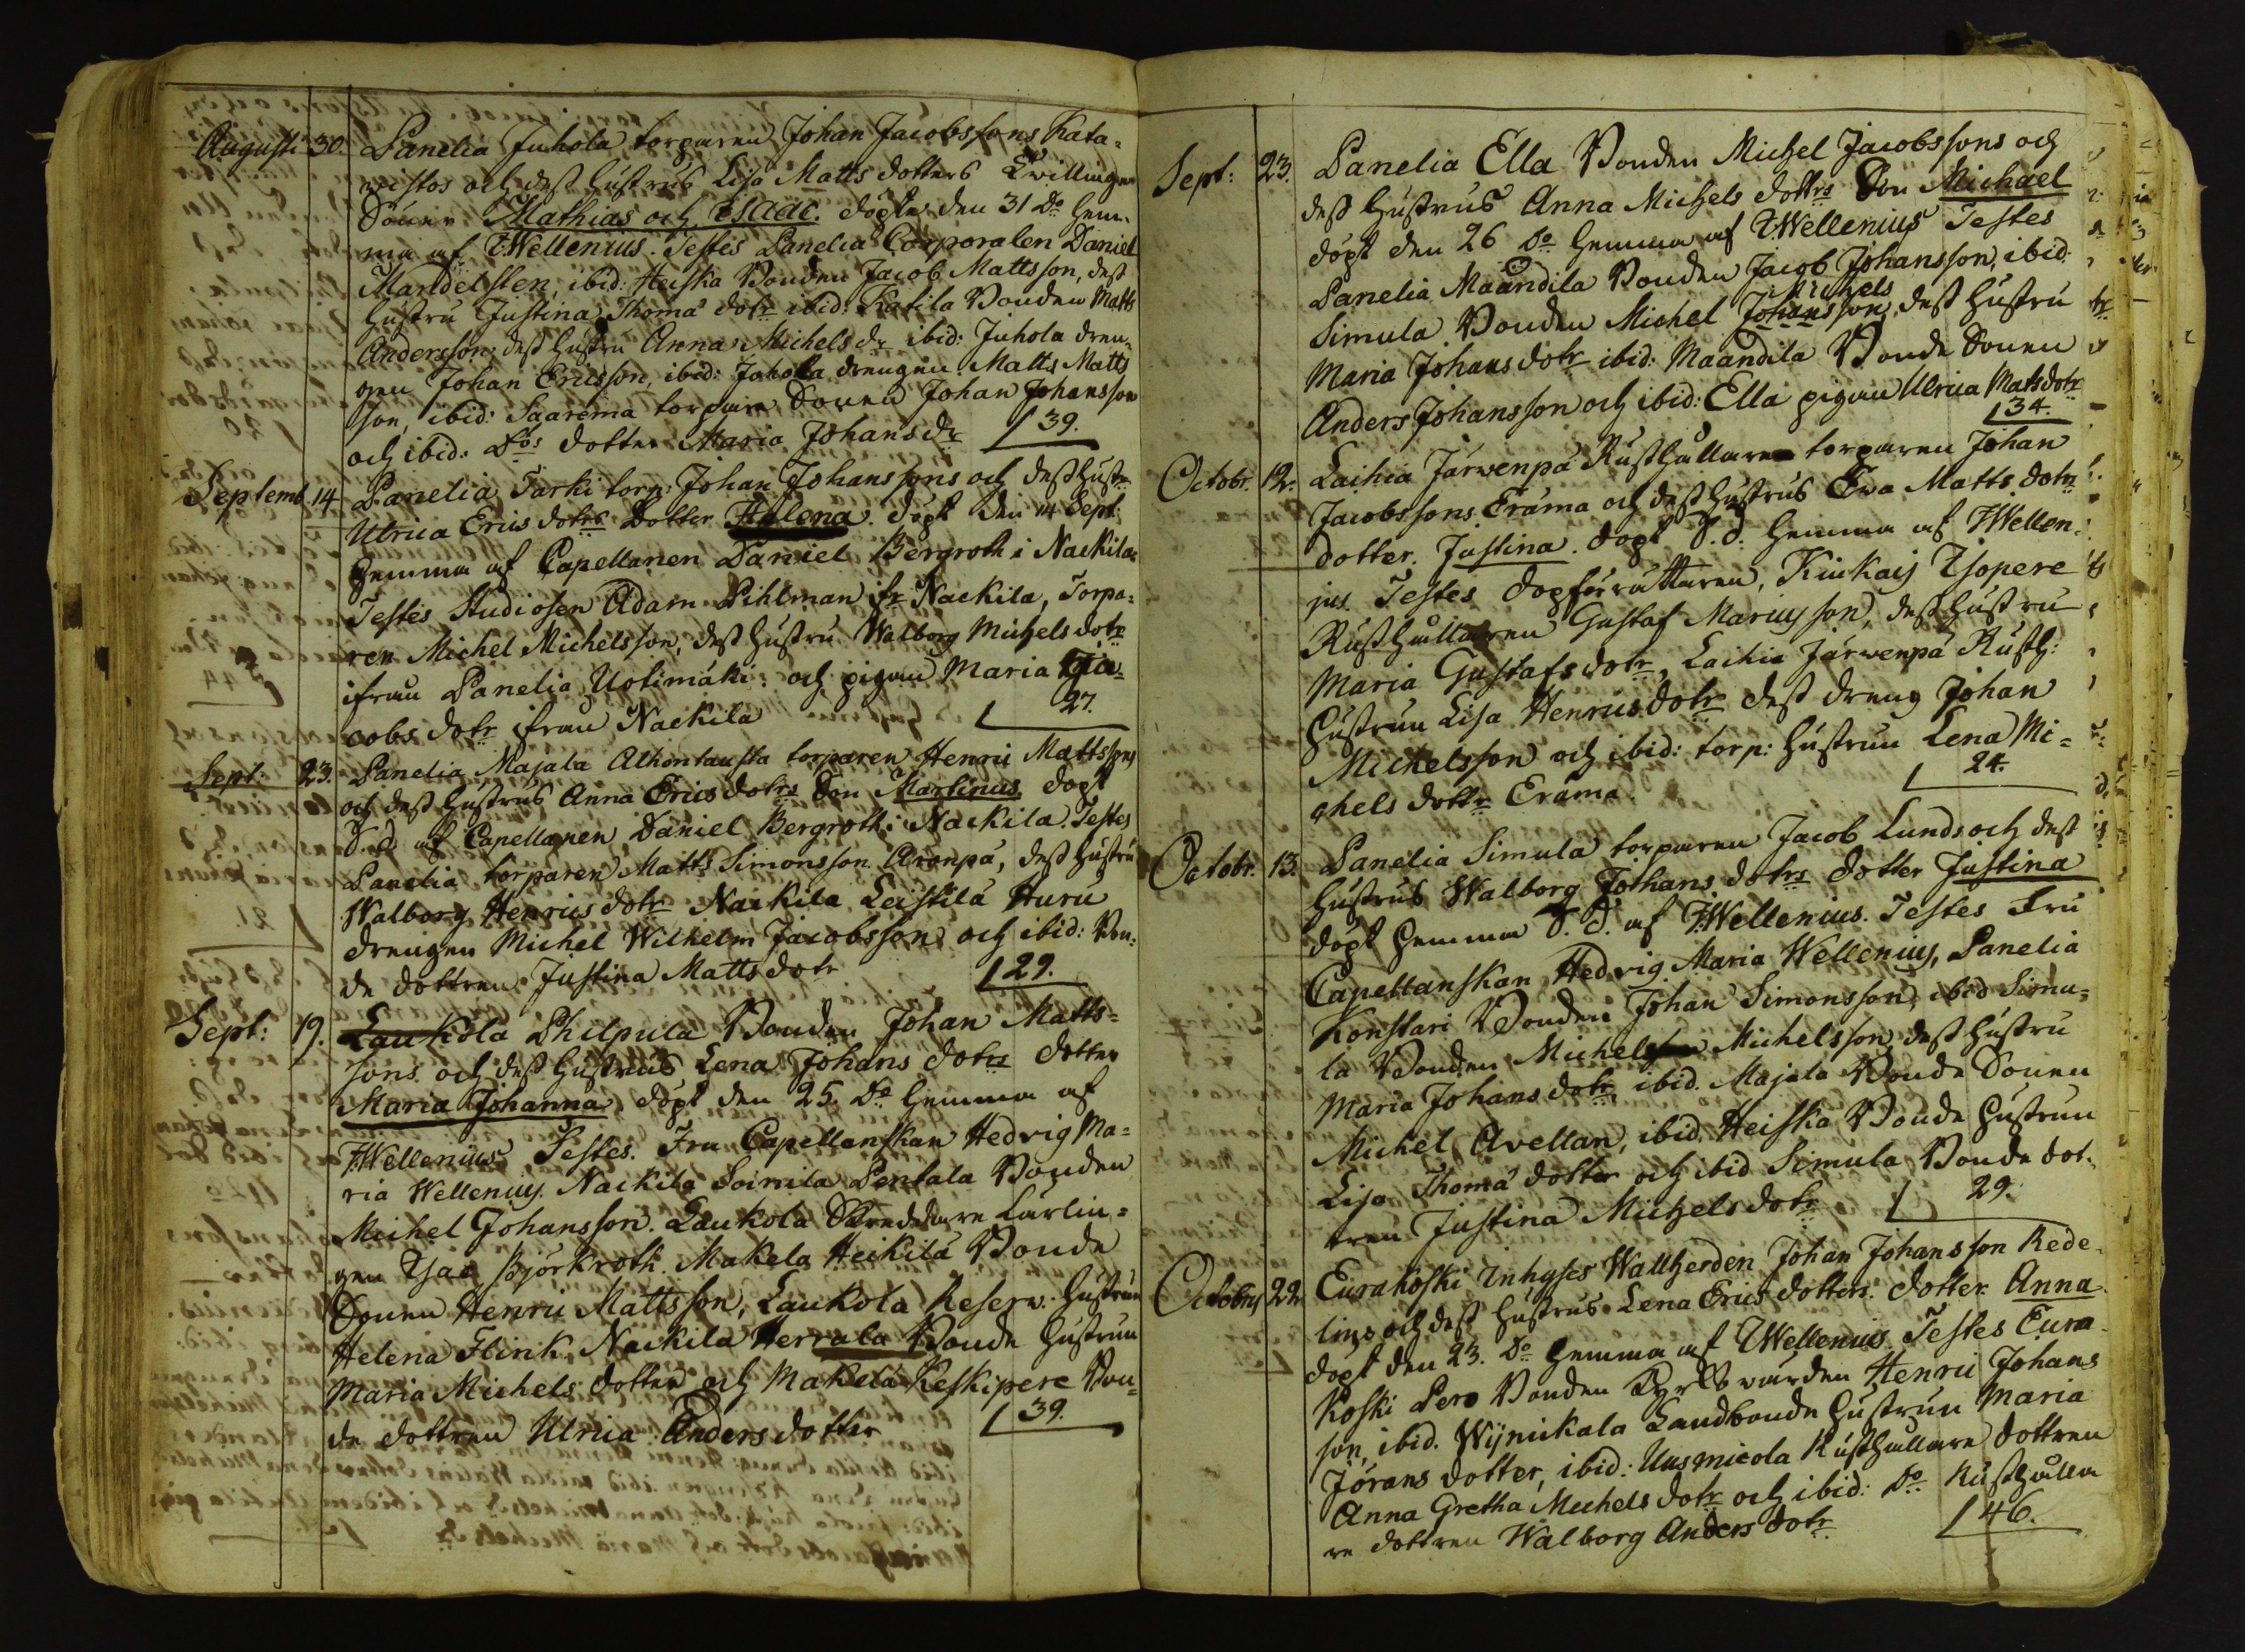 Augusti 30. Panelia Juhola torparen Johan Jacobssons Kata=
wistos och dess hustrus Lisa Matts dotters Twillingar
Söner Mathias och Isaac. döpte den 31 Do hem=
ma af IWellenius. Testes Panelia Corporalen Daniel
Mandelsten, ibid: Heiska Bonden Jacob Mattsson, dess
hustru Justina Thomæ dotr ibid: Kakila Bonden Matts
Andersson, dess hustru Anna Michels dr ibid: Juhola dren=
gen Johan Ericsson, ibid: Johola drengen Matts Matts
son, ibid: Saarema torpare Sonen Johan Johansson
och ibid: Dos dotter Maria Johans dr 39.
Septemb. 14 Panelia Tarki torp: Johan Johanssons och dess hustr
Ulrica Erics dotrs Dotter Helena. döpt den 14 Sept:
hemma af Capellanen Daniel Bergroth i Nackila
Testes Studiosen Adam Pihlman fr Nackila, Torpa=
ren Michel Michelsson, dess hustru Walborg Michels dotr
ifrån Panelia Uotimäki: och pigan Maria Ja=
cobs dotr ifrån Nackila 27.
Sept: 23. Panelia Majala Alhontausta torparen Henric Mattssons
och dess hustrus Anna Erics dotrs Son Martinus döpt
S. d. af Capellanen Daniel Bergroth i Nackila. Testes
Panelia torparen Matts Simonsson Aronpä, dess hustru
Walborg Henrics dotr Nackila Leistilä Huru
drengen Michel Wilhelm Jacobsson och ibid: Bon=
de dottren Justina Matts dotr 29.
Sept: 19. Laukola Philpula Bonden Johan Matts=
sons och dess hustrus Lena Johans dotrs dotter
Maria Johanna, döpt den 25 Do hemma af
IWellenius Testes. Fru Capellanskan Hedvig Ma=
ria Wellenius. Nackila Soinila Pentala Bonden
Michel Johansson. Laukola Skreddare Lärlin=
gen Isac Björkroth. Makela Heikilä Bonde
Sonen Henric Mattsson, Laukola Reserv. hustrun
Helena Flink. Nackila Herrala Bonde hustrun
Maria Michels dotter och Makelä Keskipere Bon=
de dottren Ulrica Anders dotter 39.
Sept: 23. Panelia Ella Bonden Michel Jacobssons och
dess hustrus Anna Michels dottrs Son Michael
döpt den 26 Do hemma af IWellenius Testes
Panelia Maandila Bonden Jacob Johansson, ibid.
Michels
Simula Bonden Michel Johansson, dess hustru
Maria Johans dotr ibid: Maandila Bonde Sonen
Anders Johansson och ibid: Ella pigan Ulrica Matsdotr
34.
Octobr. 12. Laihia Järwenpä Rusthållare torparen Johan
Jacobssons Eräma och dess hustrus Eva Matts dotrs
dotter. Justina. döpt S. d. hemma af IWellen=
ius. Testes dopförrättaren, Kiukais Isopere
Rusthållaren Gustaf Mariusson, dess hustru
Maria Gustafs dotr, Laihia Järwenpä Rusth:
hustrun Lisa Henrics dotr dess dreng Johan
Michelsson och ibid: torp: hustrun Lena Mi=
chels dottr Eräma. 24.
Octobr. 13. Panelia Simula torparen Jacob Lunds och dess
hustrus Walborg Johans dotrs dotter Justina
döpt hemma S. d. af IWellenius. Testes Fru
Capellanskan Hedvig Maria Wellenius, Panelia
Konstari Bonden Johan Simonsson, ibid Simu=
la Bonden Michel Michelsson, dess hustru
Maria Johans dotr, ibid. Majala Bonde Sonen
Michel Avellan, ibid. Heiska Bonde hustrun
Lisa Thomæ dotter och ibid Simula Bonde dot=
tren Justina Michels dotr 29.
Octobris 22. Eurakoski Inhyses Wallherden Johan Johansson Rede=
lins och dess hustrus Lena Erics dotters. dotter. Anna
döpt den 23. Do hemma af IWellenius. Testes Eura
Koski Pero Bonden Kyrkovärden Henric Johans
son, ibid. Wijnickala Landbonde hustrun Maria
Jörans dotter, ibid: Uusmicola Rusthållare dottren
Anna Gretha Michels dotr och ibid: Do Rusthålla
re dottren Walborg Anders dotr 46.